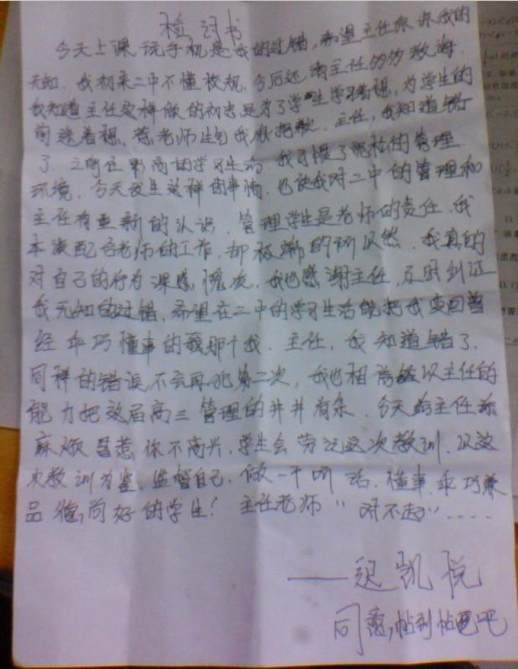 检讨书
今天上课玩手机是我的过错,希望主任原谅我的
无知。我初来二中不懂校规,今后还请主任多多教诲
我知道主任这样做的初衷是为了学生学习着想,为学生的
前途着想,惹老师生气我很抱歉。主任,我知道错
了。之前在影响的学习生活 我习惯了的管理
环境,今天发生这样的事情,也使我对二中的管理和
主任有重新的认识,管理学生是老师的责任,我
本该配合老师的工作,却极端的所以然,我真的
对自己的行为深感愧疚,我也感谢主任,及时纠正
我无知的过错,希望在二中的学习生活能把我变回曾
经乖巧懂事的那个我。主任,我知道错了,
同样的错误不会再犯第二次,我也相信以主任的
能力把这届高三管理的井井有条,今天给主任添
麻烦 惹你不高兴,学生会劳记这次教训,以这
次教训为鉴,监督自己,做一个听话,懂事,乖巧兼
品德高好的学生!主任老师“对不起”……
——迟凯悦
同意,帖到帖吧吧